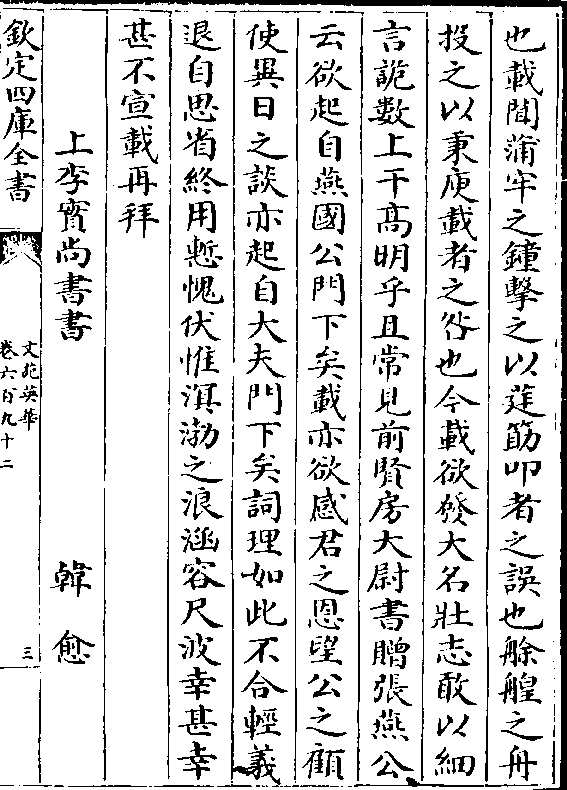 也載聞蒲牢之鐘擊之以莛筯叩者之誤也艅艎之舟
投之以秉庾載者之咎也今載欲發大名壯志敢以細
言詭數上干髙明乎且常見前賢房太尉書贈張燕公
云欲起自燕國公門下矣載亦欲感君之恩望公之顧
使異日之談亦起自大夫門下矣詞理如此不合輕義
退自思省終用慙愧伏惟溟渤之浪涵容尺波幸甚幸
甚不宣載再拜
上李實尚書書 韓愈
欽定四庫全書
文苑英華
卷六百九十二
三